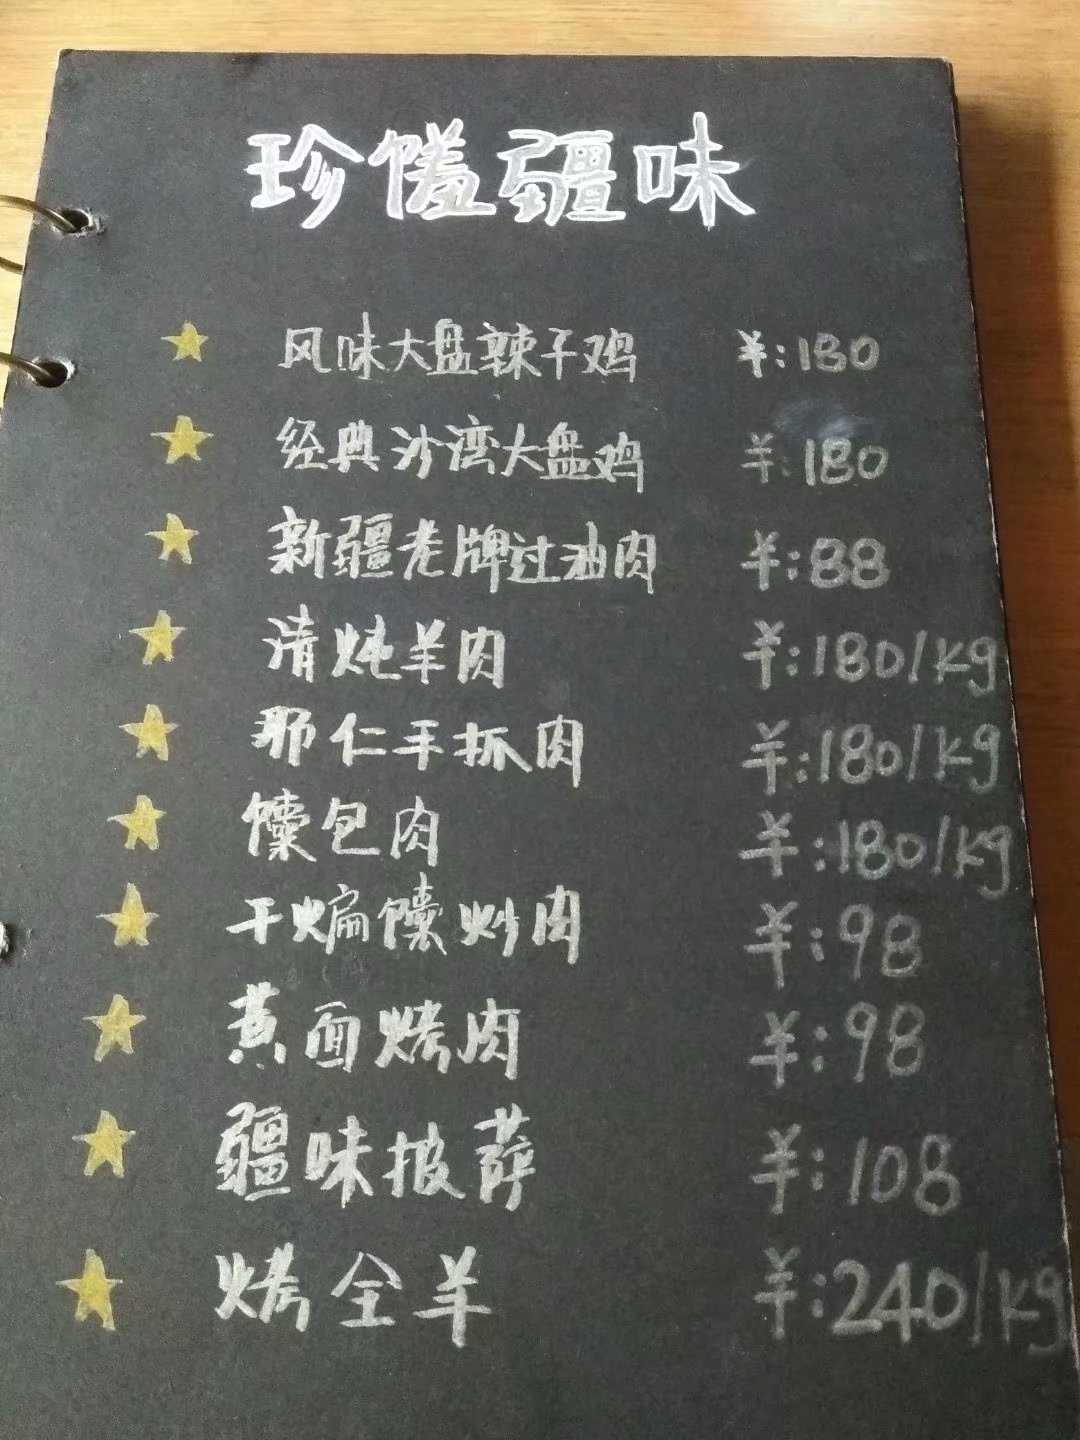 珍馐疆味
风味大盘辣子鸡 ¥:180
经典沙湾大盘鸡 ¥:180
新疆老牌过油肉 ¥:88
清炖羊肉 ¥:180/kg
那仁手抓肉 ¥:180/kg
馕包肉 ¥:180/kg
干煸馕炒肉 ¥:98
黄面烤肉 ¥:98
疆味披萨 ¥:108
烤全羊 ¥:240/kg